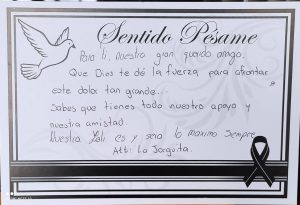 Sentido Pésame
Para ti, nuestro gran querido amigo.
Que Dios te dé la fuerza para afrontar
este dolor tan grande...
Sabes que tienes todo nuestro apoyo y
nuestra amistad.
Nuestra Lali es y sera lo maximo siempre
Att: La Jorguita.